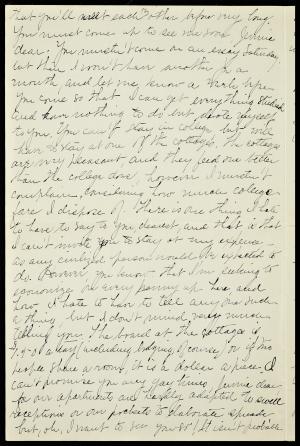 that you'll meet each other before very long.
You must come up to see me soon, Jennie
dear. You mustn't come on an essay Saturday
but then I won't have another for a
month, and let me know a while before
you come so that I can get everything studied
and have nothing to do but devote myself
to you. You can't stay in college but will
have to stay at one of the cottages. The cottages
are very pleasant and they feed one better
than the college does, however I mustn't
complain, considering how much college
fare I dispose of. There is one thing I hate
to have to say to you, dearest, and that is that
I can't invite you to stay at my expense
as any civilized person would be expected to
do. However you know that I'm seeking to
economize on every penny up here, and
how I hate to have to tell any one such
a thing, but I don't mind very much
telling you. The board at the cottages is
a day (including lodging of course) or if two
people share a room, it is a dollar a piece. I
can't promise you any gay times, Jennie dear
for our apartments are hardly adapted to swell
receptions or our pockets to elaborate spreads
but, oh, I want to see you so! It isn't probable